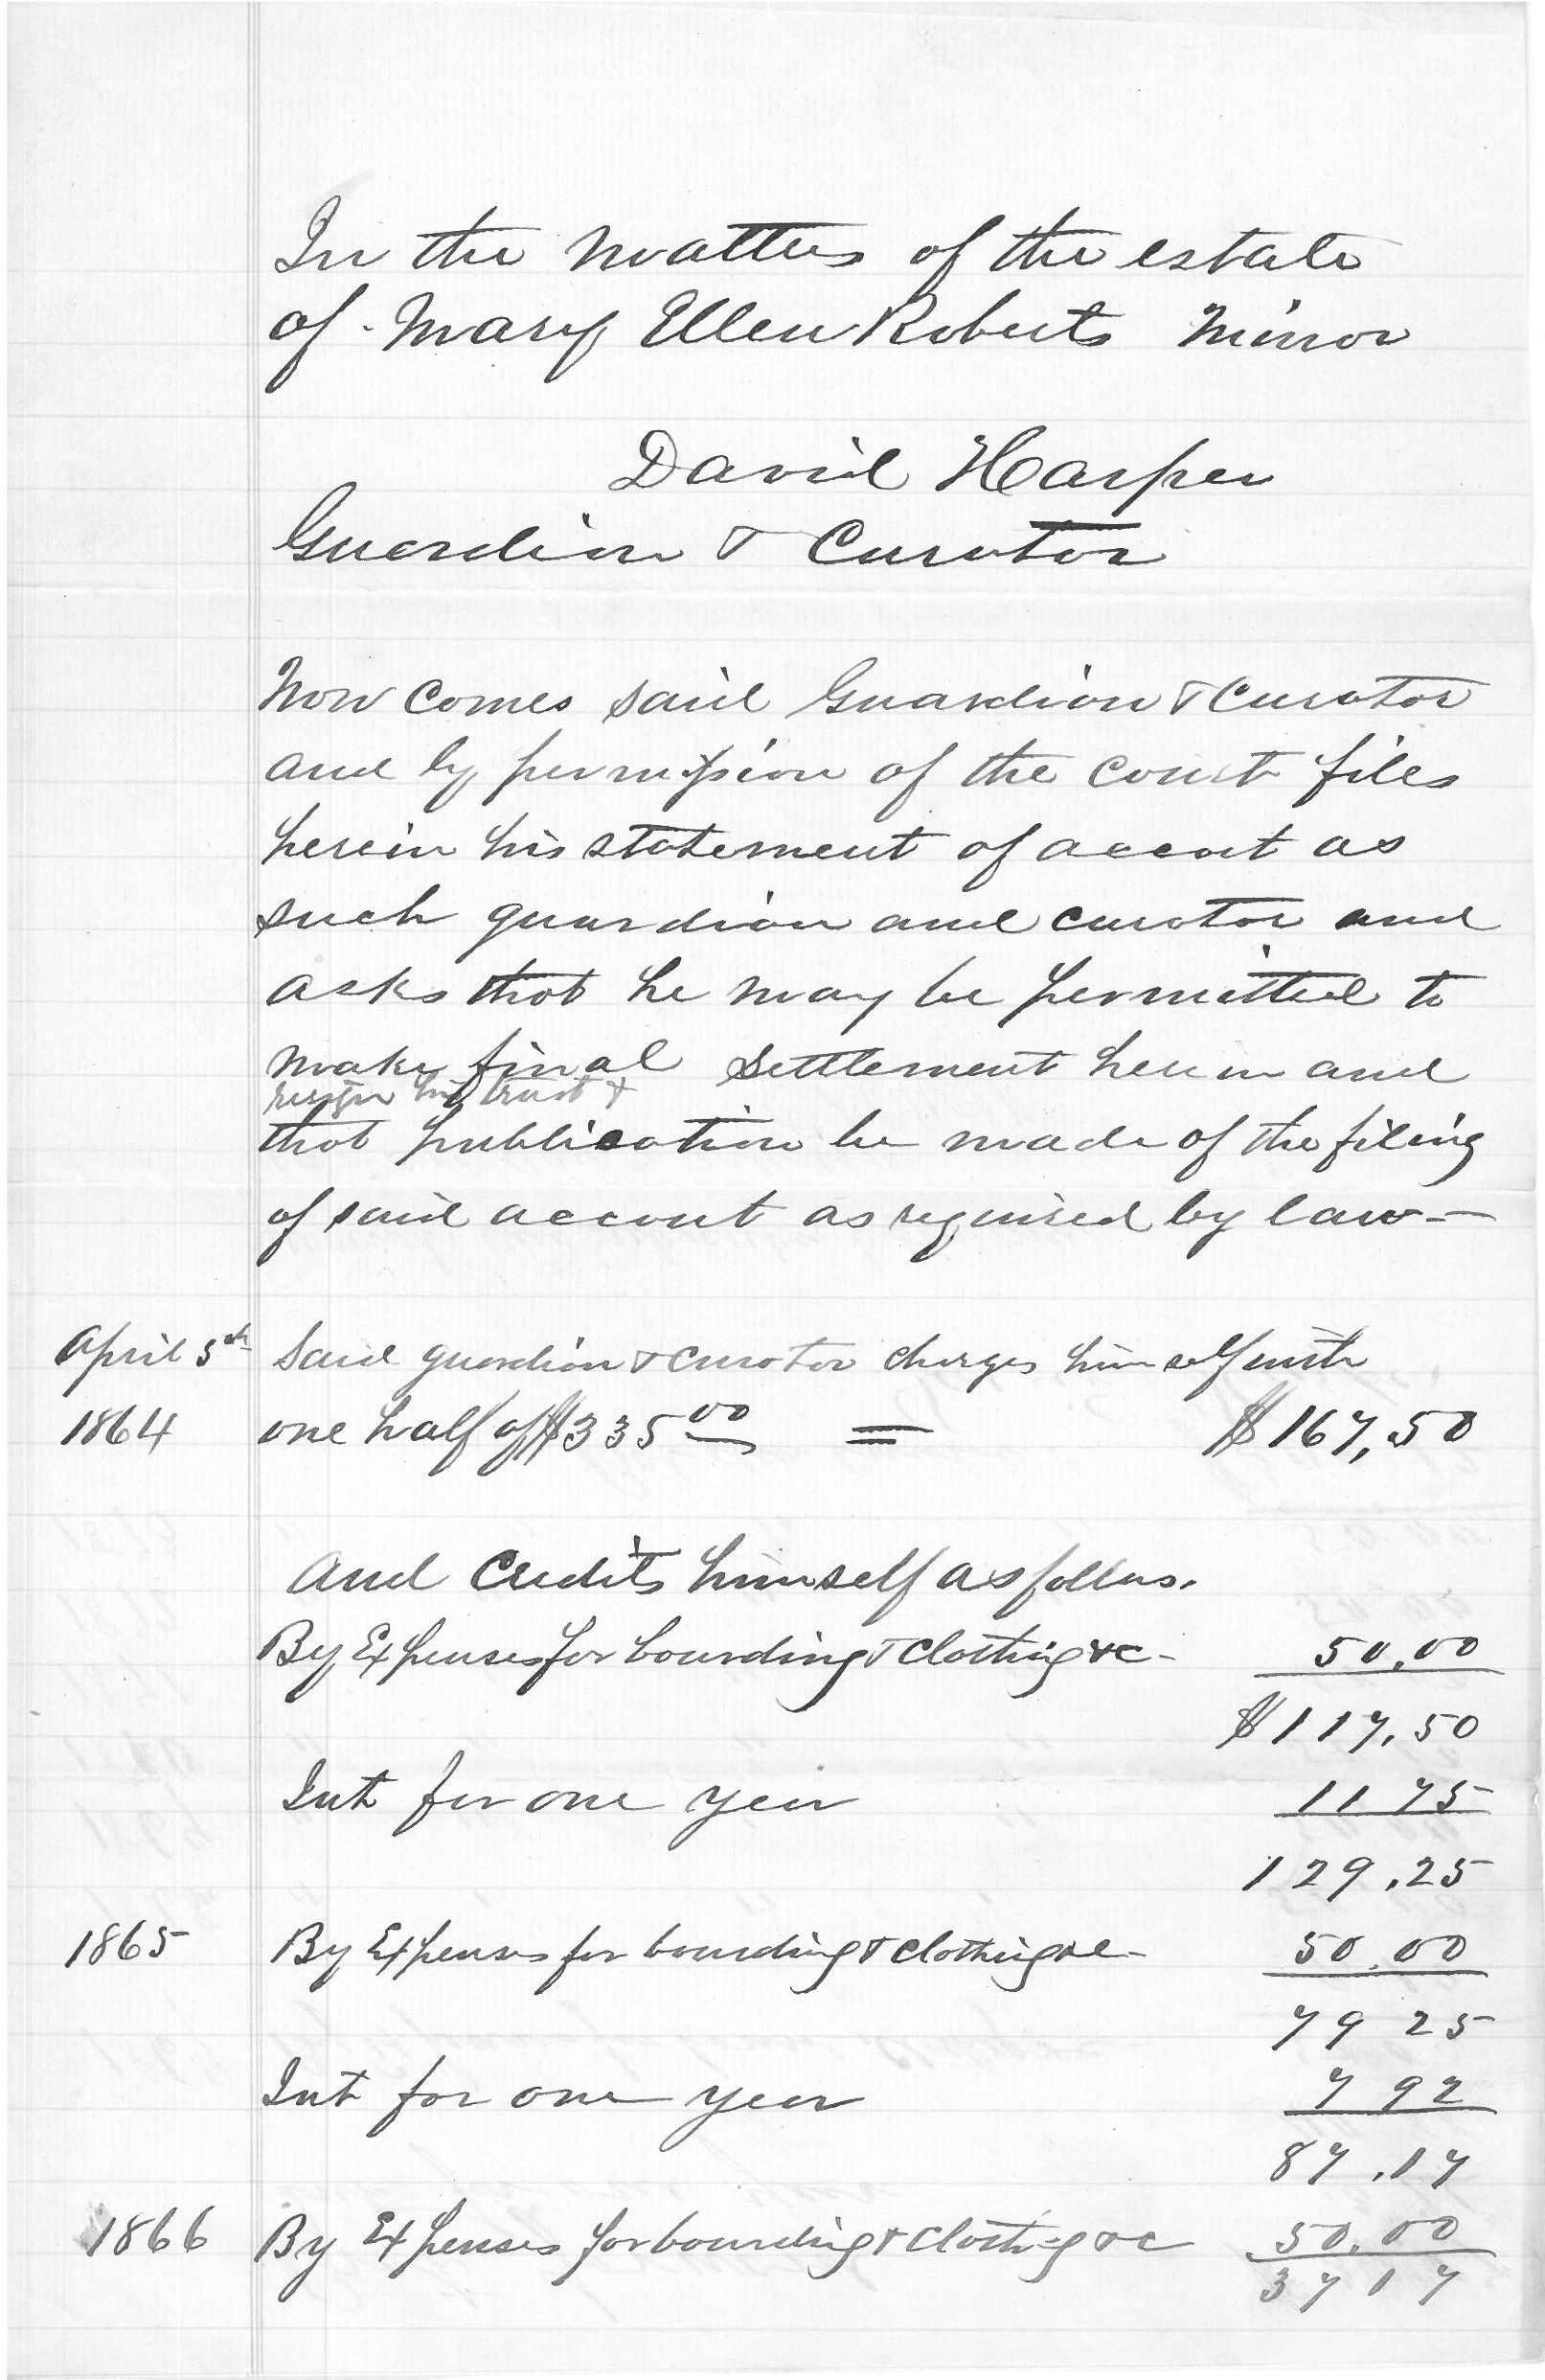 In the matter of the estate
of Mary Ellen Roberts Minor
David Harper
Guardian & Curator
Now comes said Guardian & Curator
and by permission of the court files
herein his statement of accout as
such guardian and curator and
asks that he may be permitted to
make final settlement herein and
resign his trust &
that publication be made of the filing
of said accout as required by law—
April 5th Said guardian & curator charges himself with
1864 one half of $335 00 = $167,50
And Credits himself as follows.
By Expenses for bourding & Clothing &c - 50.00
$117.50
Int for one year 11 75
129.25
1865 By Expenses for bourding & clothing &c - 50.00
79 25
Int for one year 7 92
87.17
1866 By Expenses for bourding & Clothing &c 50.00
37 17